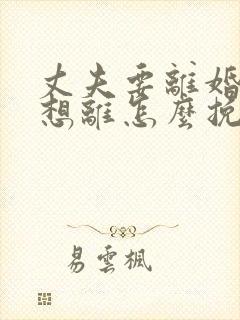 丈夫要離婚
想離怎麼挽
易雲楓